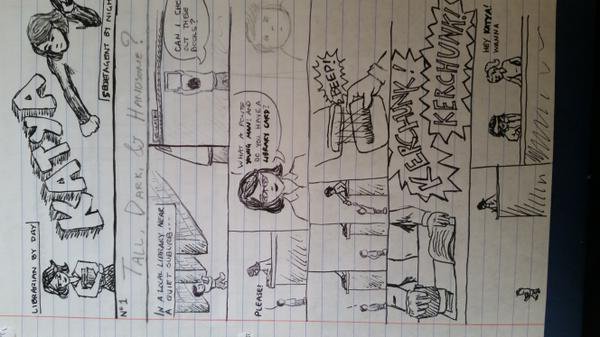 LIBRARIAN BY DAY
KATYA
SECRET AGENT BY NIGHT
Nº1 TALL, DARK, & HANDSOME?
IN A LOCAL LIBRARY NEAR
A QUIET SUBURB...
CAN I
OUT THESE
BOOKS?
PLEASE!
WHAT A POLITE
YOUNG MAN! AND
DO YOU HAVE A
LIBRARY CARD?
BEEP!
KERCHUNK!
KERCHUNK!
HEY KATYA!
WANNA